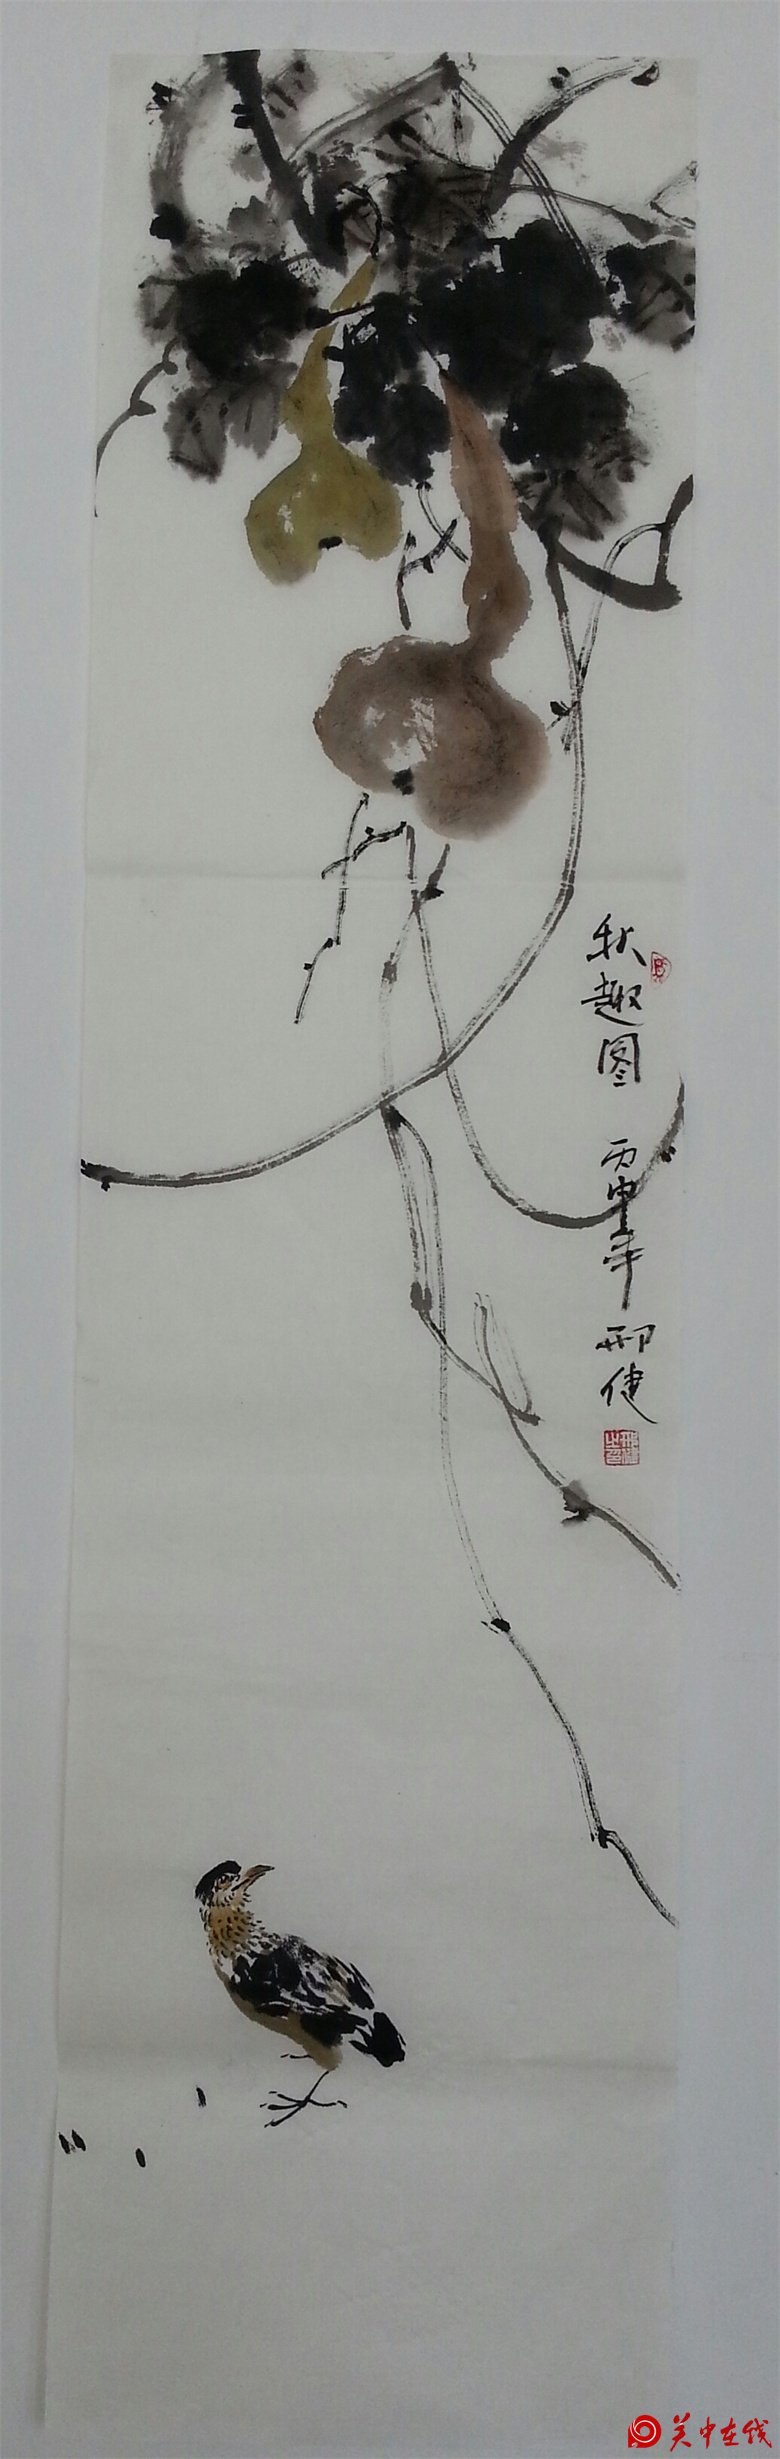 秋趣图
丙申年
邢健
关中在线